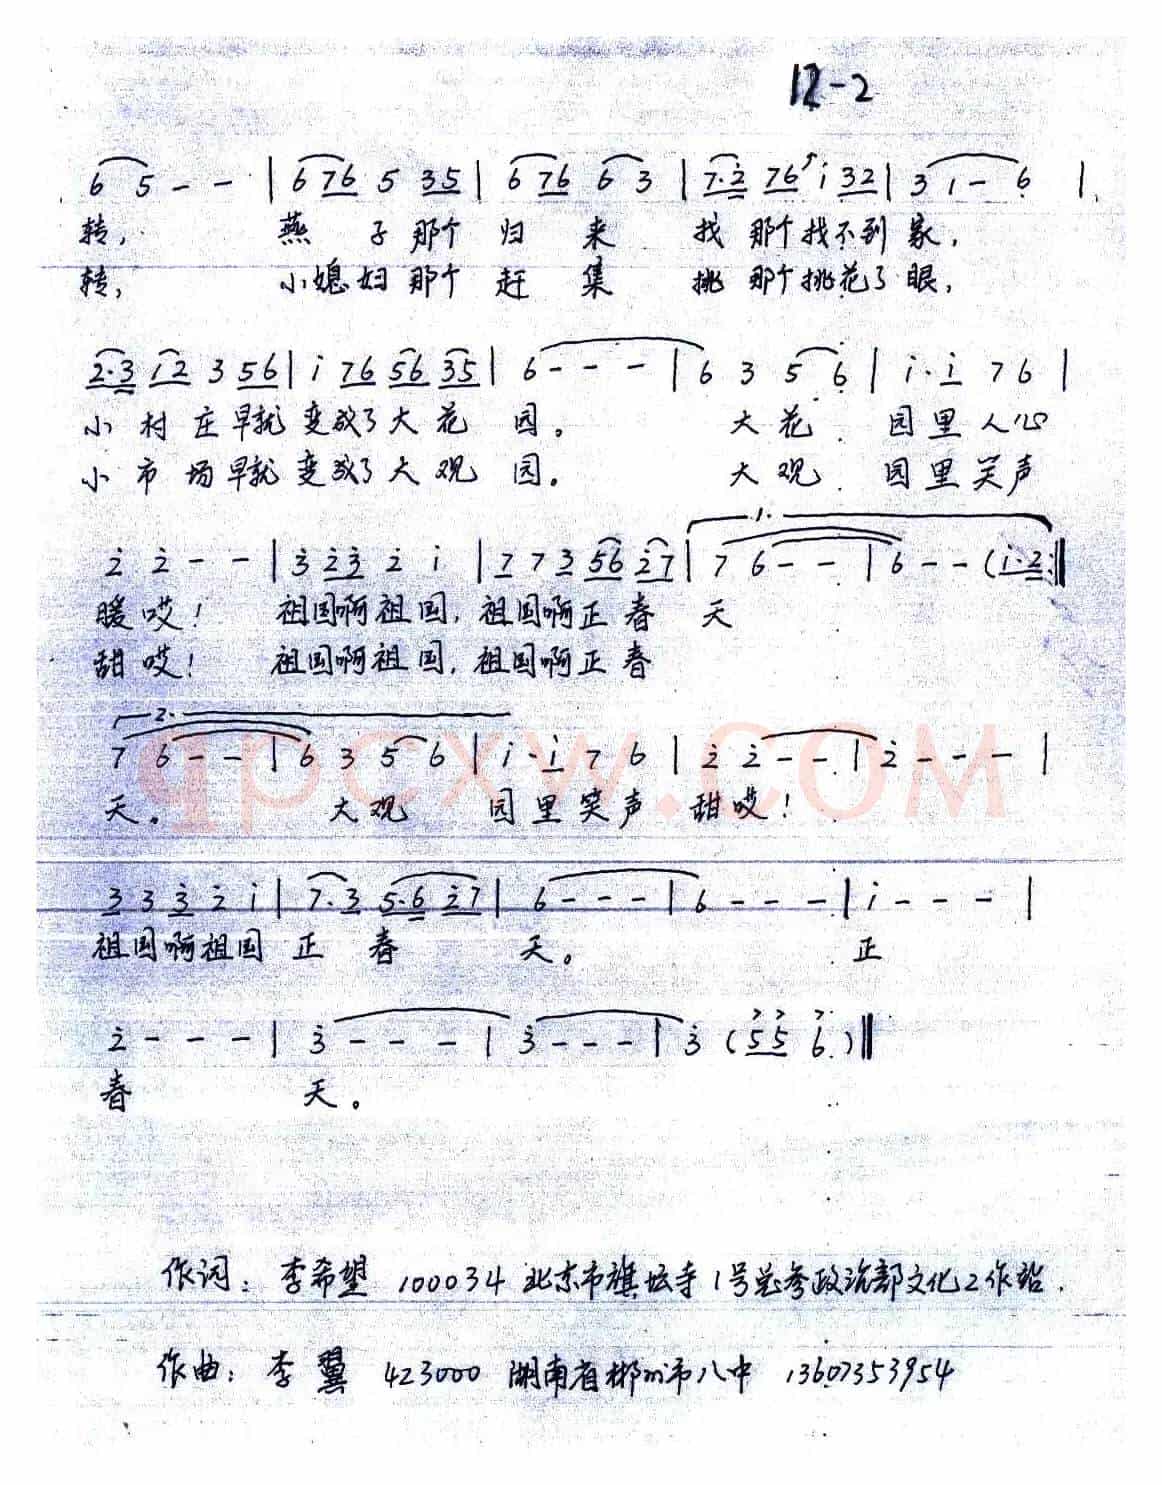 12-2
6 5 - - | 6 76 5 35 | 6 76 6 3 | 7·2 76 i 32 | 3 1 - 6 |
转， 燕 子 那个 归 来 找 那个 找不到 家，
转， 小媳妇 那个 赶 集 挑 那个 挑花了 眼，
2·3 i2 3 56 | i 76 56 35 | 6 - - - | 6 3 5 6 | i· i 7 6 |
小 村 庄 早就 变成了 大 花 园。 大 花 园 里 人 心
小 市 场 早就 变成了 大 观 园。 大 观 园 里 笑 声
1.
2 2 - - | 3 23 2 i | 7 7 3 56 27 | 7 6 - - | 6 - - (i·2 :‖
暖 哎！ 祖国啊 祖 国，祖国啊 正 春 天
甜 哎！ 祖国啊 祖 国，祖国啊 正 春
2.
7 6 - - | 6 3 5 6 | i· i 7 6 | 2 2 - - | 2 - - - |
天。 大 观 园 里 笑 声 甜 哎！
qpcxw.com
3 3 3 2 i | 7·3 5·6 27 | 6 - - - | 6 - - - | i - - - |
祖国啊祖国 正 春 天。 正
2 - - - | 3 - - - | 3 - - - | 3 (55 6) ‖
春 天。
作词：李希望 100034 北京市旗坛寺1号总参政治部文化工作站.
作曲：李 翼 423000 湖南省郴州市八中 13607353954